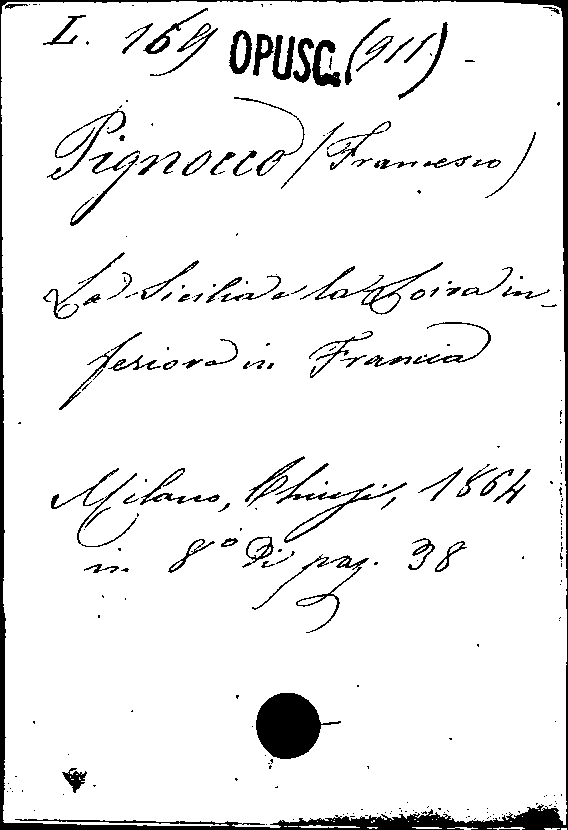 L. 169 OPUSC. (911)
Pignocco (Francesco)
La Sicilia e la Loira in-
feriore in Francia
Milano, Chiusi, 1864
in 8º di pag. 38